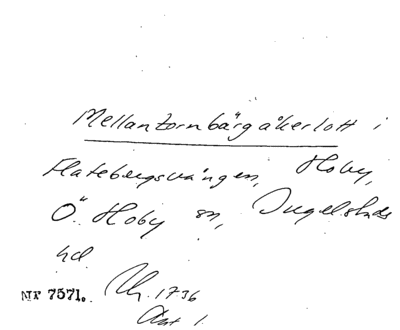 Mellantornbärgåkerlott i
Flatebergsvången, Hoby,
Ö. Hoby sn, Ingelstads
hd.
Nr 7571. 1736
Akt 1.